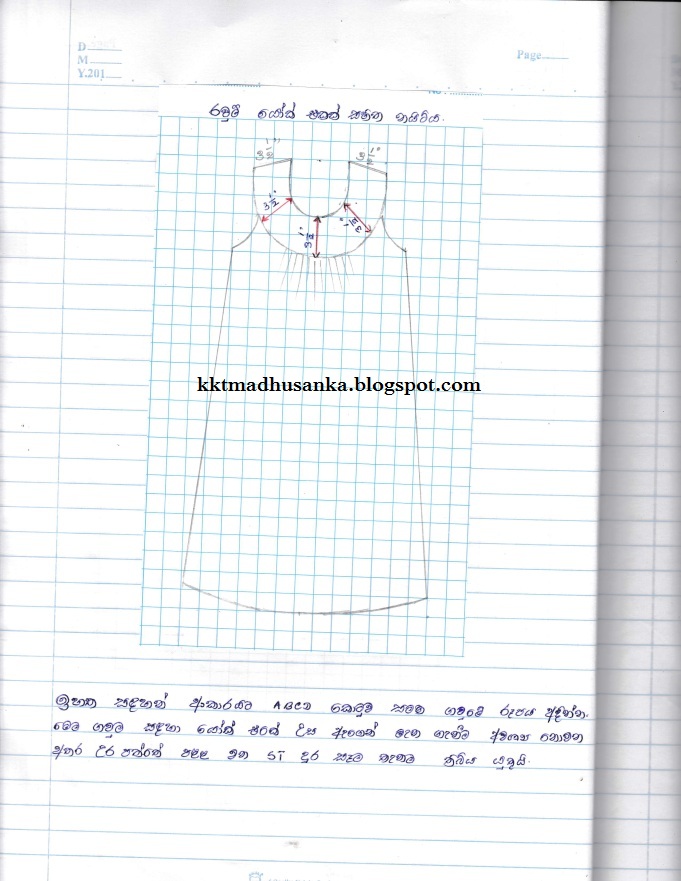 D
M
Y.201
Page
රවුම් යෝක් එකක් සහිත නයිටිය.
3 1/2"
3 1/2"
3 1/2"
3 1/2"
3 1/2"
kktmadhusanka.blogspot.com
ඉහත සඳහන් ආකාරයට ABCD කොටුව සමඟ ගවුමේ රූපය අඳින්න.
මෙම ගවුම සඳහා යෝක් එකේ උස ඇඟෙන් මැන ගැනීම අවශ්‍ය නොවන
අතර උර පත්තේ පළල වන ST දුර සෑම තැනම තිබිය යුතුයි.